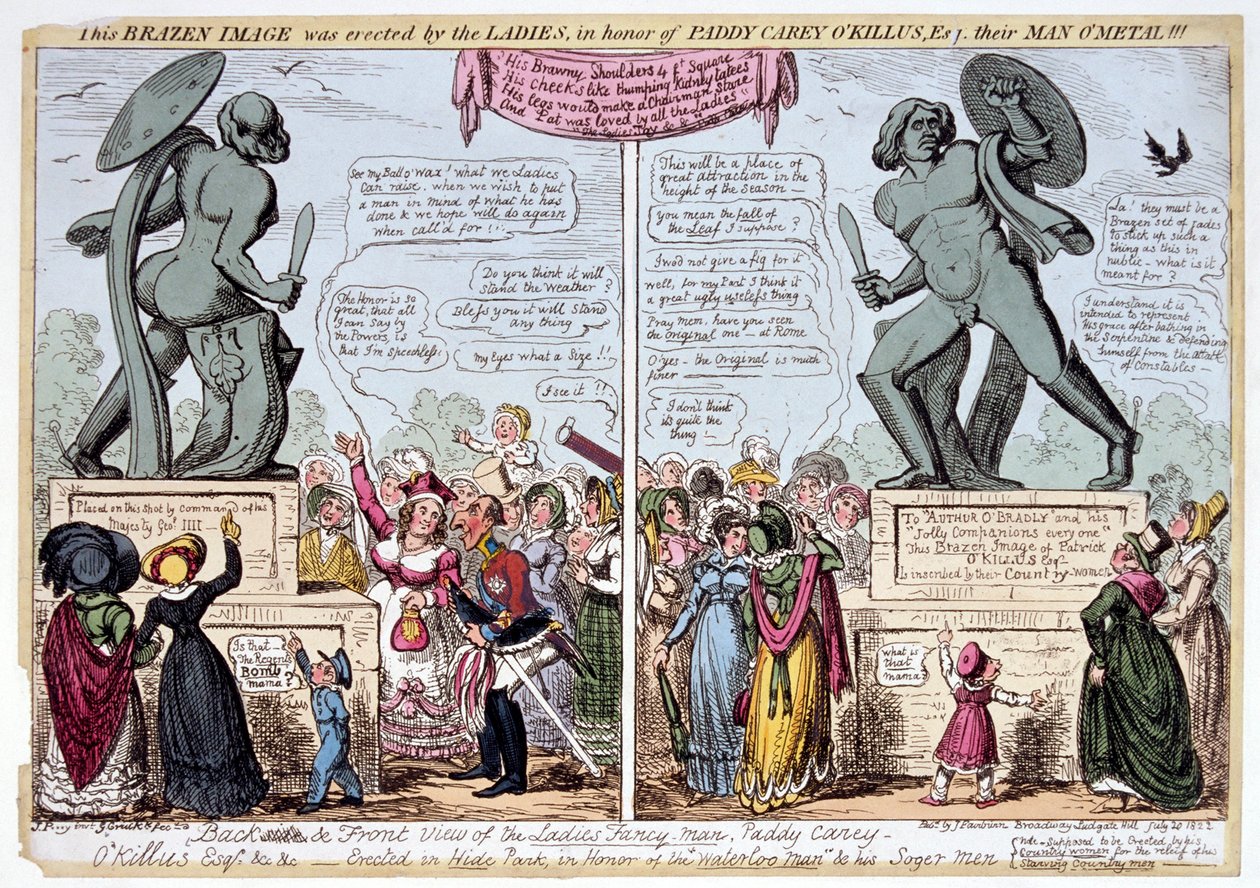 This BRAZEN IMAGE was erected by the LADIES, in honor of PADDY CAREY O'KILLUS, Esq. their MAN O'METAL!!!
"His Brawny Shoulders 4 ft Square
His Cheeks like thumping Kidney tatees
His legs would make a Chairman Stare
And Pat was loved by all the Ladies"
"The Ladies Joy &c &c"
See my Ball o' Wax! what we Ladies
Can raise, when we wish to put
a man in mind of what he has
done & we hope will do again
when call'd for!!
Do you think it will
stand the Weather?
Bless you it will Stand
any thing
The Honor is so
great, that all
I can Say by
the Powers, is
that I'm Speechless
my Eyes what a Size!!
I see it!!
Placed on this Spot by Command of his
Majesty Geo. IIII
Is that
The Regents
BOMB
mama?
This will be a place of
great attraction in the
height of the Season —
you mean the fall of
the Leaf I suppose?
I wod not give a fig for it
well, for my Part I think it
a great ugly useless thing
Pray mem, have you seen
the original one — at Rome
O' yes — the Original is much
finer
I dont think
its quite the
thing —
La! they must be a
Brazen set of jades
to stick up such a
thing as this in
public — what is it
meant for?
I understand it is
intended to represent
His grace after bathing in
the Serpentine & defending
himself from the attack
of Constables —
To "AUTHUR O'BRADLY" and his
"Jolly Companions every one"
This Brazen Image of Patrick
O'KILLUS Esqr
Is inscribed by their Country-women
what is
that
mama?
J. Perry invt G. Cruik fect
Pubd by J Fairburn Broadway Ludgate Hill July 20 1822
Back & Front View of the Ladies Fancy-man, Paddy Carey —
O'Killus Esqr. &c &c — Erected in Hide Park, in Honor of the "Waterloo man" & his Soger men
Note — Supposed to be Erected by his
Country women for the releif of his
Starving Country men —